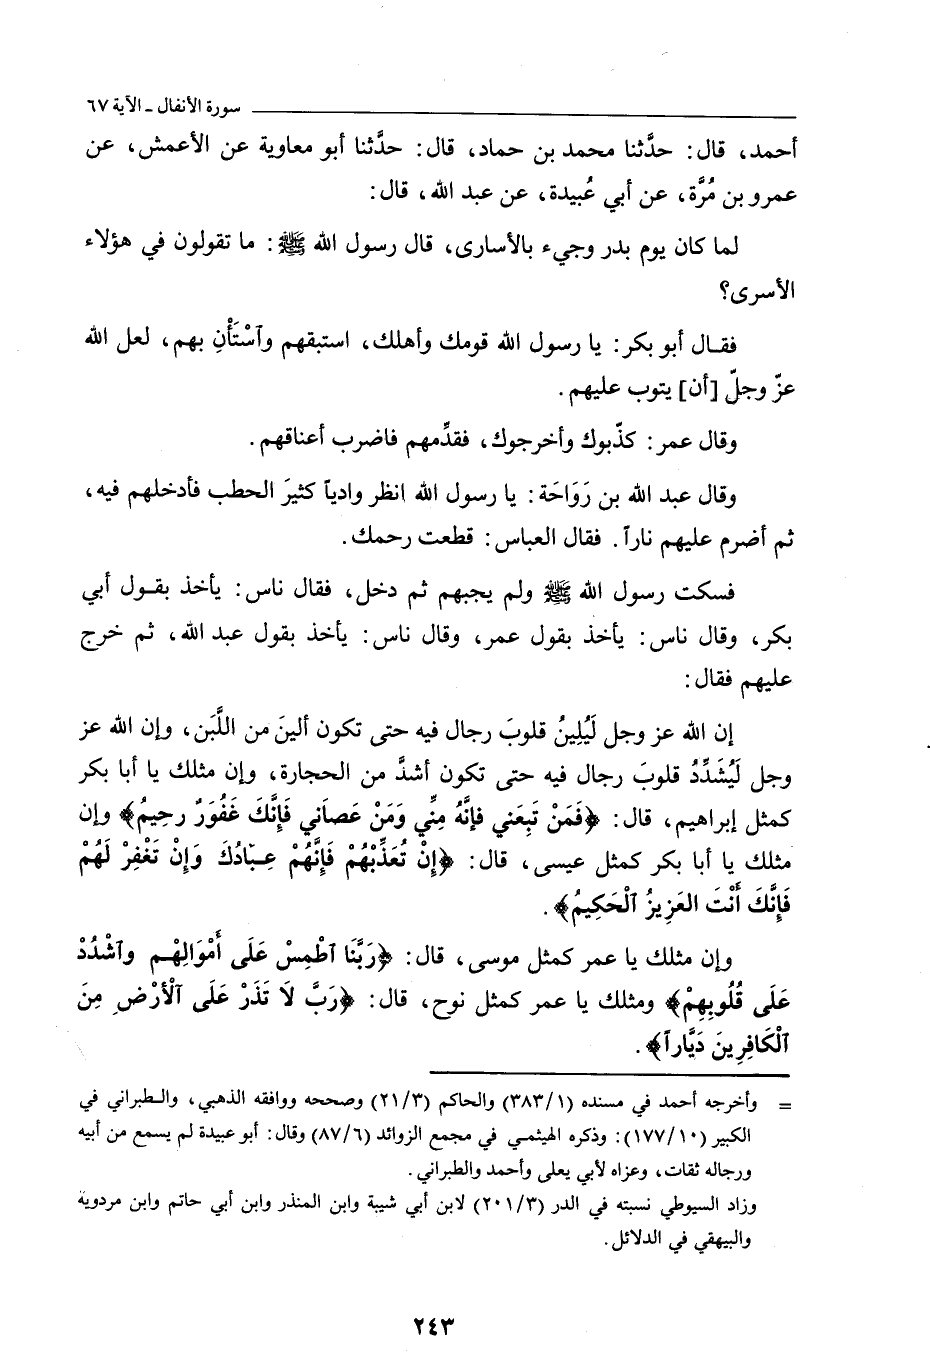 سورة الأنفال ـ الآية ٦٧
أحمد، قال: حدَّثنا محمد بن حماد، قال: حدَّثنا أبو معاوية عن الأعمش، عن
عمرو بن مُرَّة، عن أبي عُبيدة، عن عبد الله، قال:
لما كان يوم بدر وجيء بالأسارى، قال رسول الله ﷺ: ما تقولون في هؤلاء
الأسرى؟
فقال أبو بكر: يا رسول الله قومك وأهلك، استبقهم وٱسْتَأْنِ بهم، لعل الله
عزّ وجلّ [أن] يتوب عليهم.
وقال عمر: كذّبوك وأخرجوك، فقدِّمهم فاضرب أعناقهم.
وقال عبد الله بن رَوَاحَة: يا رسول الله انظر وادياً كثيرَ الحطب فأدخلهم فيه،
ثم أضرم عليهم ناراً. فقال العباس: قطعت رحمك.
فسكت رسول الله ﷺ ولم يجبهم ثم دخل، فقال ناس: يأخذ بقول أبي
بكر، وقال ناس: يأخذ بقول عمر، وقال ناس: يأخذ بقول عبد الله، ثم خرج
عليهم فقال:
إن الله عز وجل لَيُلِينُ قلوبَ رجال فيه حتى تكون ألينَ من اللَّبَن، وإن الله عز
وجل لَيُشَدِّدُ قلوبَ رجال فيه حتى تكون أشدَّ من الحجارة، وإن مثلك يا أبا بكر
كمثل إبراهيم، قال: ﴿فَمَنْ تَبِعَني فإنَّهُ مِنِّي وَمَنْ عَصَاني فَإِنَّكَ غَفُورٌ رحِيمُ﴾ وإن
مثلك يا أبا بكر كمثل عيسى، قال: ﴿إِنْ تُعَذِّبْهُمْ فَإِنَّهُمْ عِبَادُكَ وَإِنْ تَغْفِرْ لَهُمْ
فَإِنَّكَ أَنْتَ العَزِيزُ ٱلْحَكِيمُ﴾.
وإن مثلك يا عمر كمثل موسى، قال: ﴿رَبَّنَا ٱطْمِسْ عَلَى أَمْوَالِهْم وٱشْدُدْ
عَلَى قُلُوبِهِمْ﴾ ومثلك يا عمر كمثل نوح، قال: ﴿رَبَّ لاَ تَذَرْ عَلَى ٱلْأَرْضِ مِنَ
ٱلْكَافِرِينَ دَيَّاراً﴾.
= وأخرجه أحمد في مسنده (٣٨٣/١) والحاكم (٢١/٣) وصححه ووافقه الذهبي، والطبراني في
الكبير (١٧٧/١٠): وذكره الهيثمي في مجمع الزوائد (٨٧/٦) وقال: أبو عبيدة لم يسمع من أبيه
ورجاله ثقات، وعزاه لأبي يعلى وأحمد والطبراني.
وزاد السيوطي نسبته في الدر (٢٠١/٣) لابن أبي شيبة وابن المنذر وابن أبي حاتم وابن مردوية
والبيهقي في الدلائل.
٢٤٣